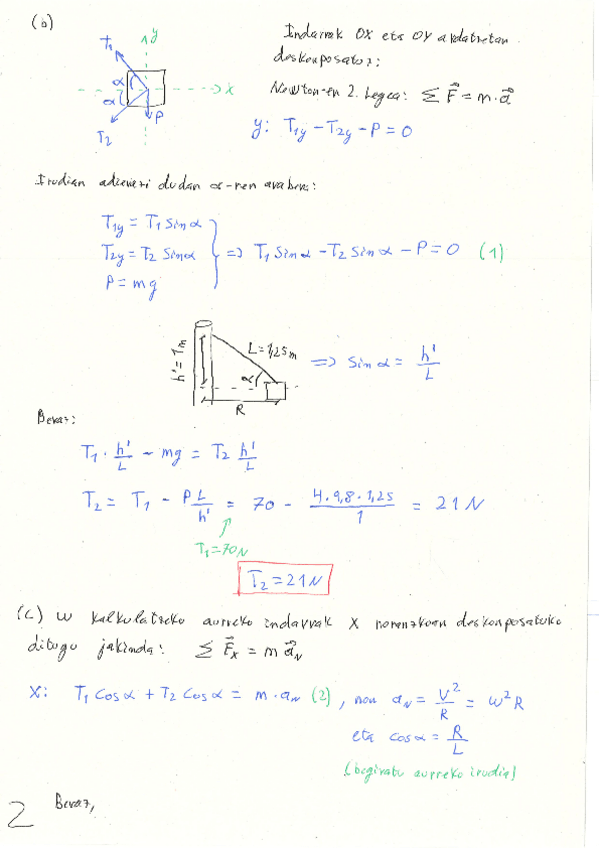 (b)
Indarrak OX eta OY ardatzetan
deskonposatuz:
Newton-en 2. Legea: Σ F⃗ = m·a⃗
y: T₁y − T₂y − P = 0
y
x
T₁
α
α
T₂
P
Irudian adierazi dudan α-ren arabera:
T₁y = T₁ sinα
T₂y = T₂ sinα
P = mg
=> T₁ sinα − T₂ sinα − P = 0 (1)
h' = 1m
L = 1,25m
α
R
=> sinα = h'/L
Beraz:
T₁ · h'/L − mg = T₂ h'/L
T₂ = T₁ − P L/h' = 70 − 4·9,8·1,25/1 = 21 N
T₁ = 70N
T₂ = 21N
(c) w kalkulatzeko aurreko indarrak X norantzkoan deskonposatuko
ditugu jakinda: Σ F⃗x = m a⃗N
X: T₁ cosα + T₂ cosα = m·aN (2), non aN = V²/R = w²R
eta cosα = R/L
(begiratu aurreko irudia)
Beraz,
2